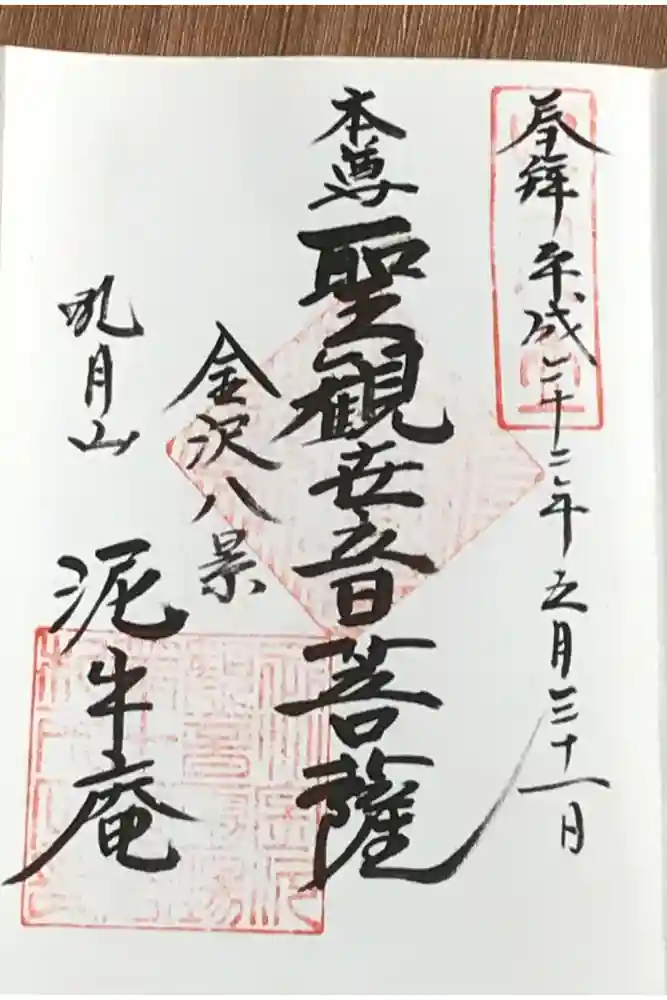 奉拝 平成二十二年五月三十一日
本尊 聖観世音菩薩
金沢八景
吼月山 泥牛庵